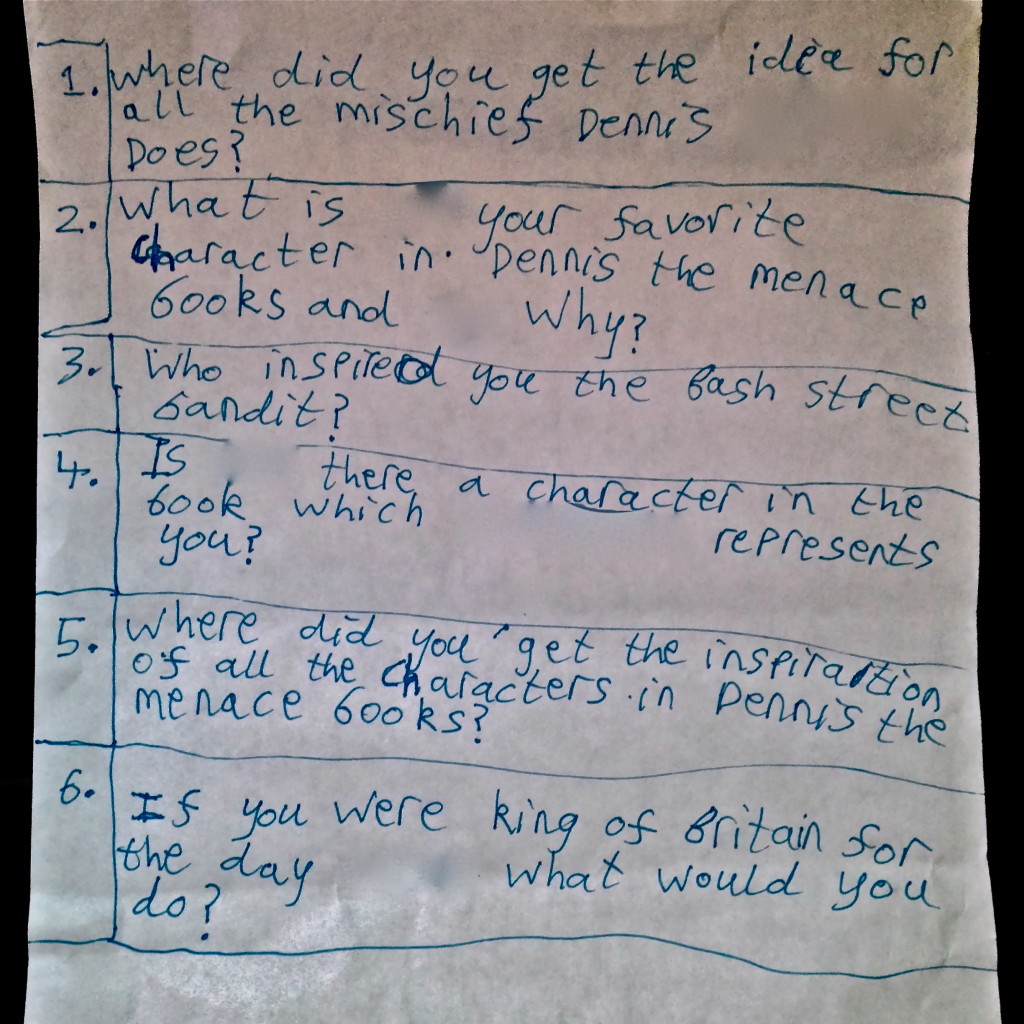 1. where did you get the idea for
all the mischief Dennis
Does?
2. What is your favorite
character in. Dennis the menace
books and Why?
3. Who inspired you the bash street
bandit?
4. Is there a character in the
book which represents
you?
5. where did you get the inspiration
of all the characters in Dennis the
menace books?
6. If you were king of Britain for
the day what would you
do?